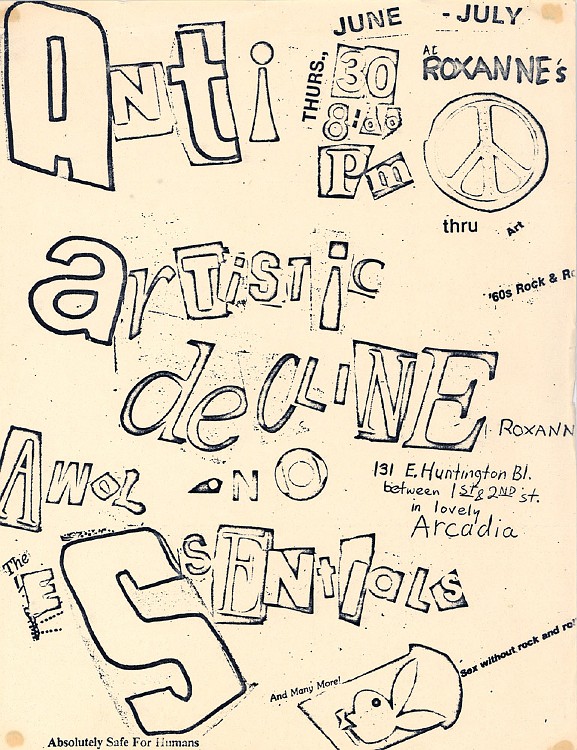 Anti
JUNE - JULY
THURS., 30
8:00
Pm
At
ROXANNE's
thru
Art
'60s Rock & Ro
arTTiSTiC
deCLINE
ROXANN
131 E. Huntington Bl.
between 1st & 2ND st.
in lovely
Arcadia
AWOL
The
ESSENtIaLs
Sex without rock and ro
And Many More!
Absolutely Safe For Humans